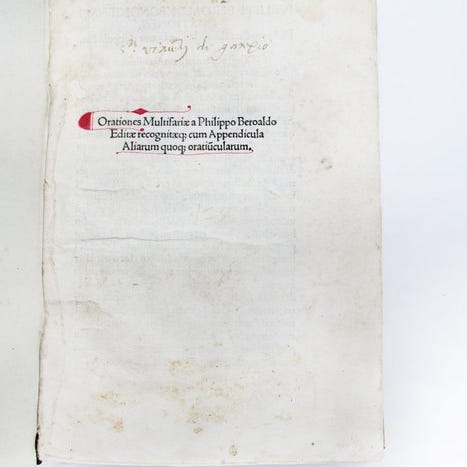 di
Orationes Multifariæ a Philippo Beroaldo
Editæ recognitæq; cum Appendicula
Aliarum quoq; oratiũcularum.